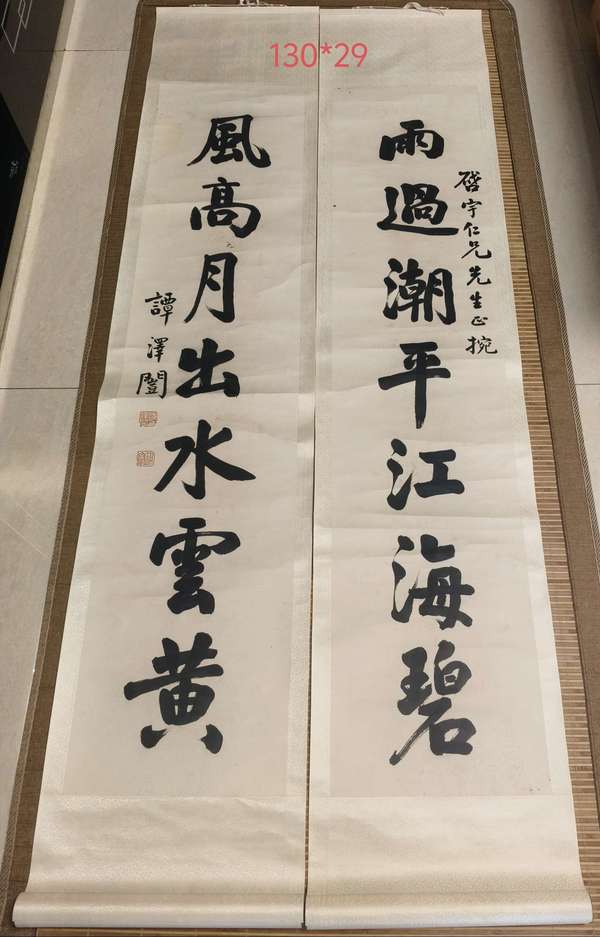 130*29
啓宇仁兄先生正捥
雨過潮平江海碧
風高月出水雲黃
譚澤闓